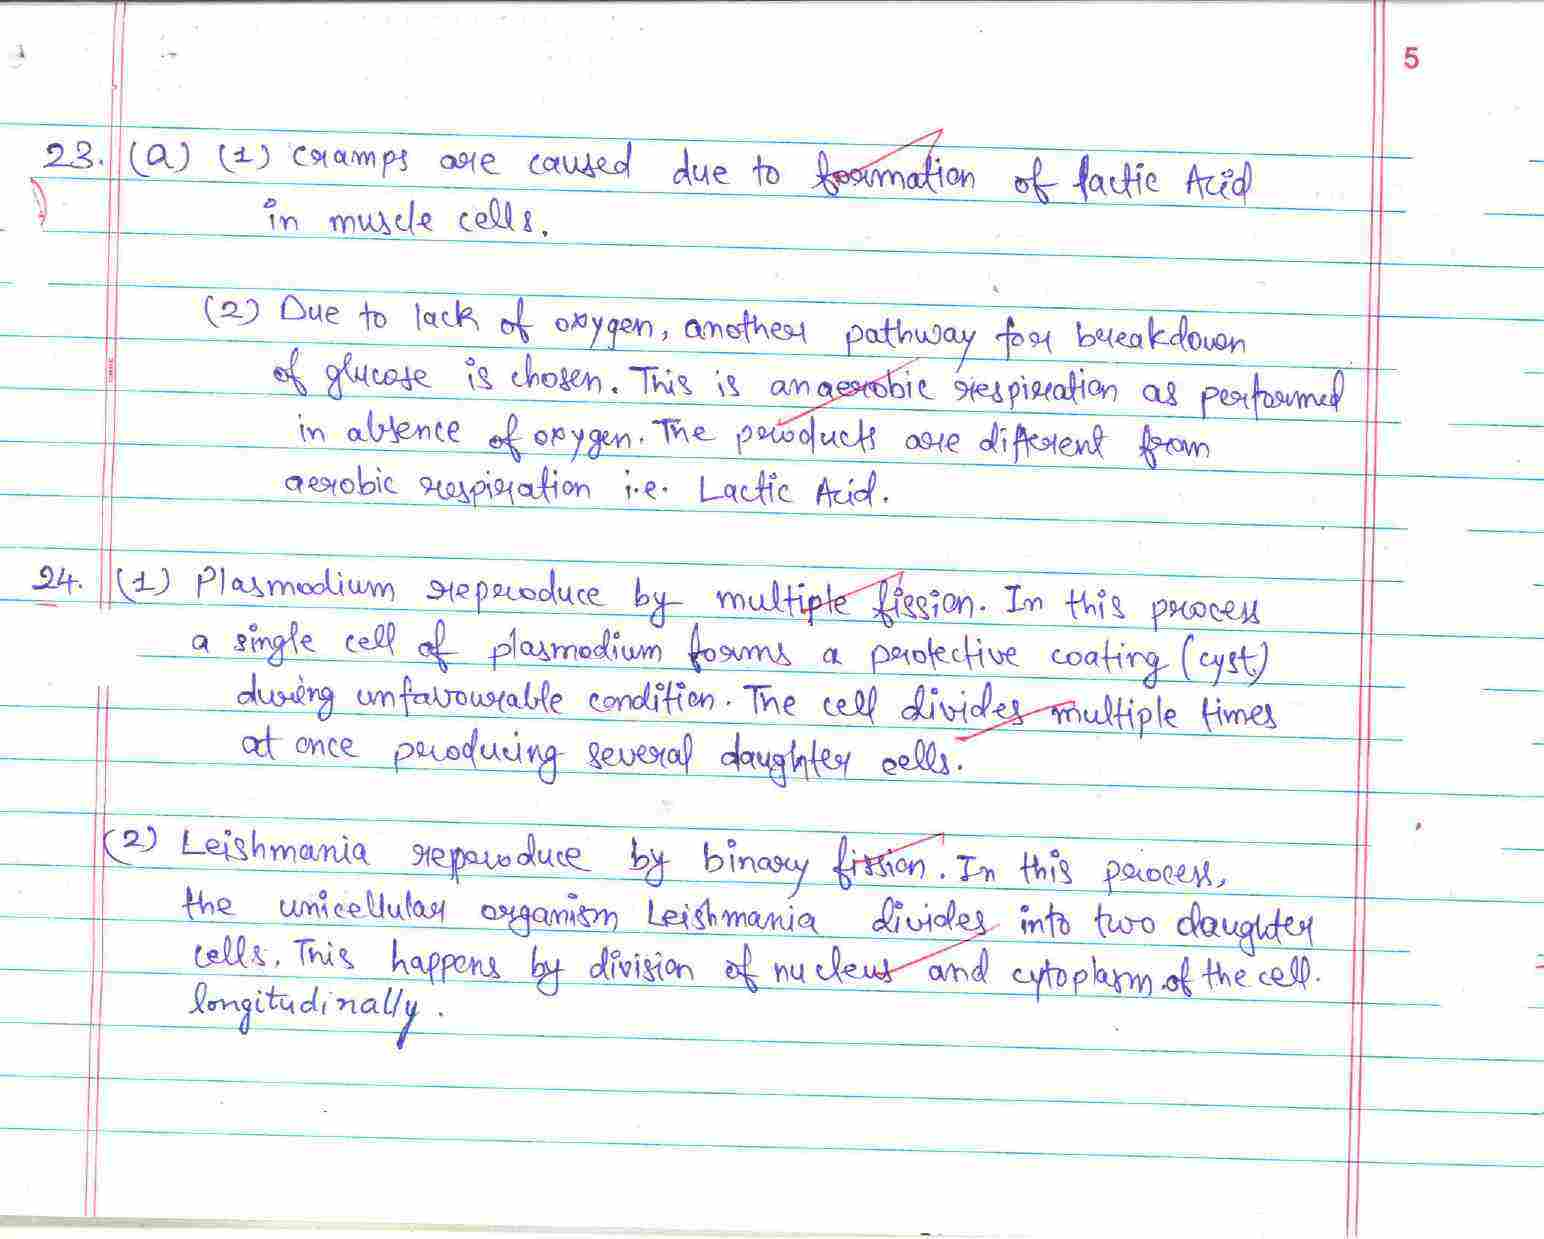 5
23. (a) (1) Cramps are caused due to formation of lactic Acid
in muscle cells.
(2) Due to lack of oxygen, another pathway for breakdown
of glucose is chosen. This is anaerobic respiration as performed
in absence of oxygen. The products are different from
aerobic respiration i.e. Lactic Acid.
24. (1) Plasmodium reproduce by multiple fission. In this process
a single cell of plasmodium forms a protective coating (cyst)
during unfavourable condition. The cell divides multiple times
at once producing several daughter cells.
(2) Leishmania reproduce by binary fission. In this process,
the unicellular organism Leishmania divides into two daughter
cells. This happens by division of nucleus and cytoplasm of the cell.
longitudinally.